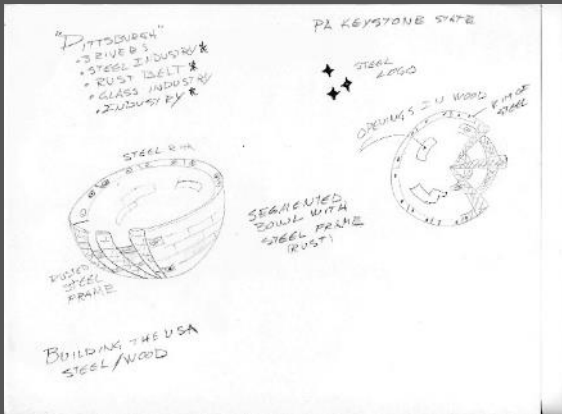 "PITTSBURGH"
• 3 RIVERS
• STEEL INDUSTRY*
• RUST BELT*
• GLASS INDUSTRY
• INDUSTRY*
PA KEYSTONE STATE
STEEL
LOGO
OPENINGS IN WOOD
RIM OF
STEEL
STEEL RIM
SEGMENTED
BOWL WITH
STEEL FRAME
(RUST)
RUSTED
STEEL
FRAME
BUILDING THE USA
STEEL/WOOD